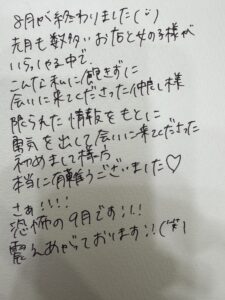 8月が終わりました(¨)
先月も数多いお店と女の子様が
いらっしゃる中で、
こんな私に飽きずに
会いに来てくださった仲良し様
限られた情報をもとに
勇気を出して会いに来てくださった
初めまして様方
本当に有難うございました♡
さぁ!!!!
恐怖の9月です!!
震えあがっております!!(笑)